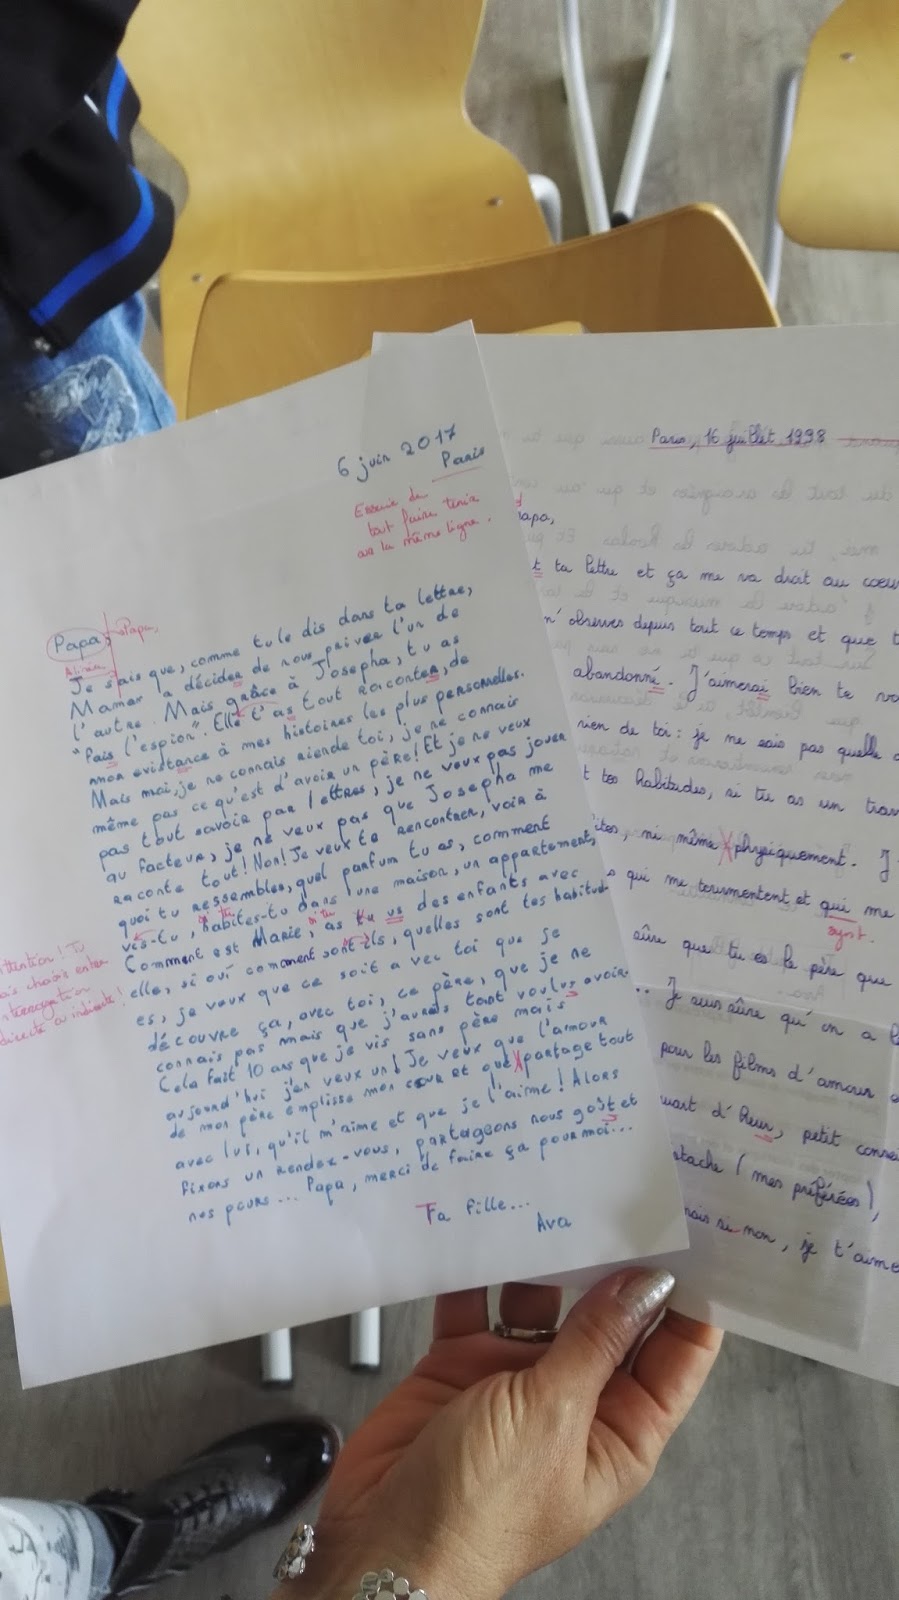 6 juin 2017
Paris
Essaie de
tout faire tenir
sur la même ligne.
Papa, Papa,
Alinéa
Je sais que, comme tu le dis dans ta lettre,
Maman a décider de nous priver l'un de
l'autre. Mais grâce à Josepha, tu as
"fais l'espion". Elle t'as tout raconter, de
mon existance à mes histoires les plus personnelles.
Mais moi, je ne connais riende toi, je ne connais
même pas ce qu'est d'avoir un père! Et je ne veux
pas tout savoir par lettres, je ne veux pas jouer
au facteur, je ne veux pas que Josepha me
raconte tout! Non! Je veux te rencontrer, voir à
quoi tu ressembles, quel parfum tu as, comment
vis-tu, habites-tu dans une maison, un appartement,
si tu
Comment est Marie, as tu us des enfants avec
si tu
elle, si oui comment sont-ils, quelles sont tes habitud-
es, je veux que ce soit avec toi que je
découvre ça, avec toi, ce père, que je ne
connais pas mais que j'aurais tant voulus avoir.
Cela fait 10 ans que je vis sans père mais
aujourd'hui j'en veux un! Je veux que l'amour
de mon père emplisse mon cœur et que partage tout
avec lui, qu'il m'aime et que je l'aime! Alors
fixons un rendez-vous, partageons nous goût et
nos peurs... Papa, merci de faire ça pour moi...
Ta fille...
Ava
Attention! Tu
dois choisir entre
interrogation
directe ou indirecte!
Paris, 16 juillet 1998
papa,
ta lettre et ça me va droit au cœur
m'observes depuis tout ce temps et que t
abandonné. J'aimerai bien te vo
rien de toi: je ne sais pas quelle
tes habitudes, si tu as un trav
ites, ni même physiquement. J
qui me tourmentent et qui me
synt.
sûre que tu es le père que
... Je suis sûre qu'on a l
pour les films d'amour
quart d'heur, petit conne
stache (mes préférées),
mais si non, je t'aime